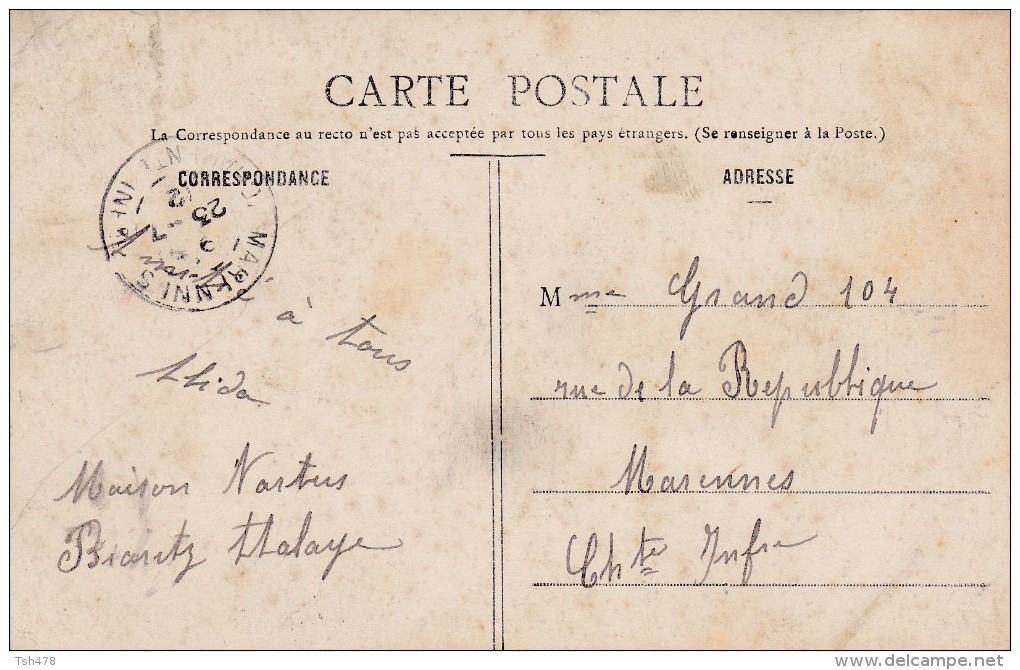 CARTE POSTALE
La Correspondance au recto n'est pas acceptée par tous les pays étrangers. (Se renseigner à la Poste.)
CORRESPONDANCE
MARENNES
23
à tous
Maison
ADRESSE
Mme Grand 104
rue de la Republique
Marennes
Chte Infre
Tsh478
delcampe.net